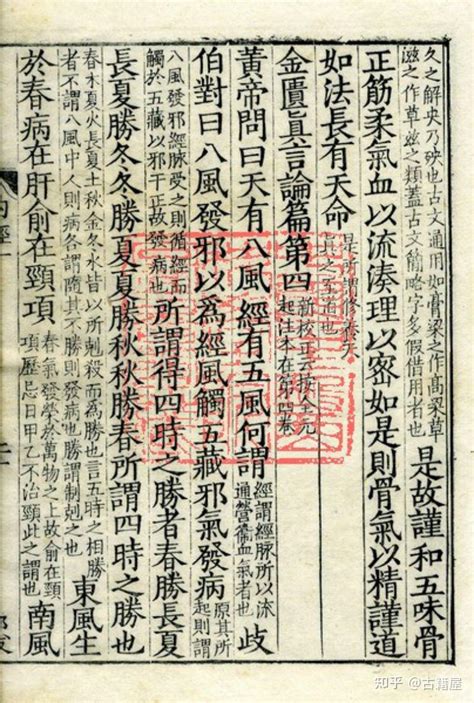 久之解央乃殃也古文通用如膏粱之作高粱草
滋之作草兹之類蓋古文簡略字多假借用者也
是故謹和五味骨
正筋柔氣血以流湊理以密如是則骨氣以精謹道
如法長有天命
是所謂修養天
真之至道也
金匱真言論篇第四
新校正云按全元
起注本在第四卷
黃帝問曰天有八風經有五風何謂
經謂經脈所以流
通營衞血氣者也
歧
伯對曰八風發邪以爲經風觸五藏邪氣發病
原其所
起則謂
八風發邪經脈受之則循經而
觸於五藏以邪干正故發病也
所謂得四時之勝者春勝長夏
長夏勝冬冬勝夏夏勝秋秋勝春所謂四時之勝也
春木夏火長夏土秋金冬水皆以所剋殺而爲勝也言五時之相勝
者不謂八風中人則病各謂隨其不勝則發病也勝謂制剋之也
東風生
於春病在肝俞在頸項
春氣發榮於萬物之上故俞在頸
項歷忌日甲乙不治頸此之謂也
南風
知乎 @古籍屋